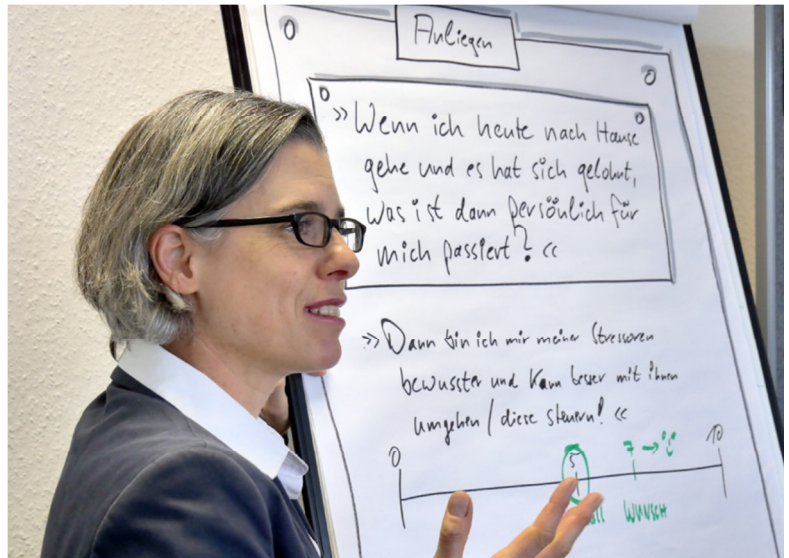 Anliegen
»Wenn ich heute nach Hause
gehe und es hat sich gelohnt,
was ist dann persönlich für
mich passiert? «
»Dann bin ich mir meiner Stressoren
bewusster und kann besser mit ihnen
umgehen / diese steuern! «
0 5 7 → 10
WUNSCH